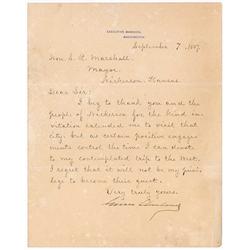 EXECUTIVE MANSION,
WASHINGTON.
September 7, 1887.
Hon. S. A. Marshall,
Mayor,
Nickerson, Kansas.
Dear Sir:
I beg to thank you and the
people of Nickerson for the kind in-
vitation extended me to visit that
city; but as certain positive engage-
ments control the time I can devote
to my contemplated trip to the West,
I regret that it will not be my privi-
lege to become their guest.
Very truly yours,
Grover Cleveland